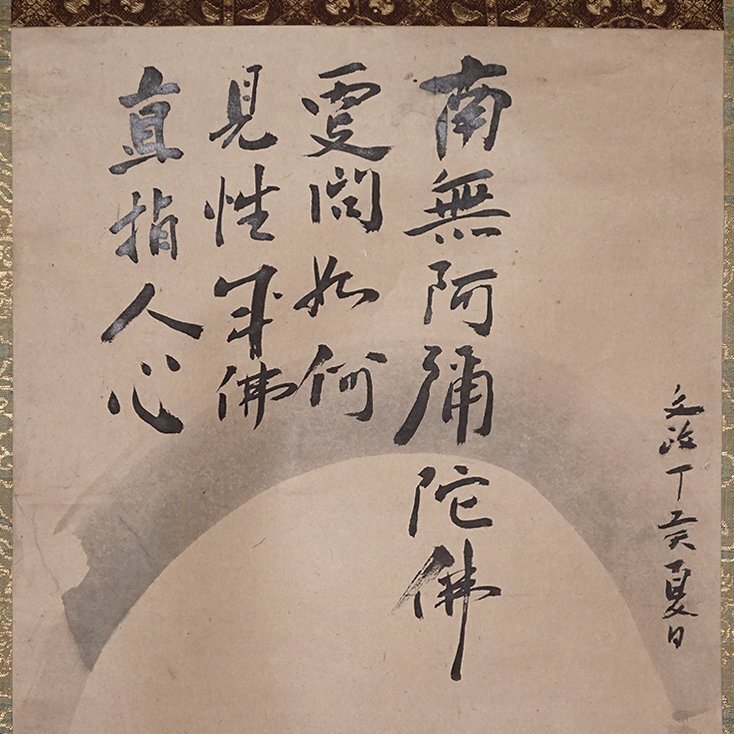 文政丁亥夏日
南無阿彌陀佛
要問如何
見性成佛
直指人心